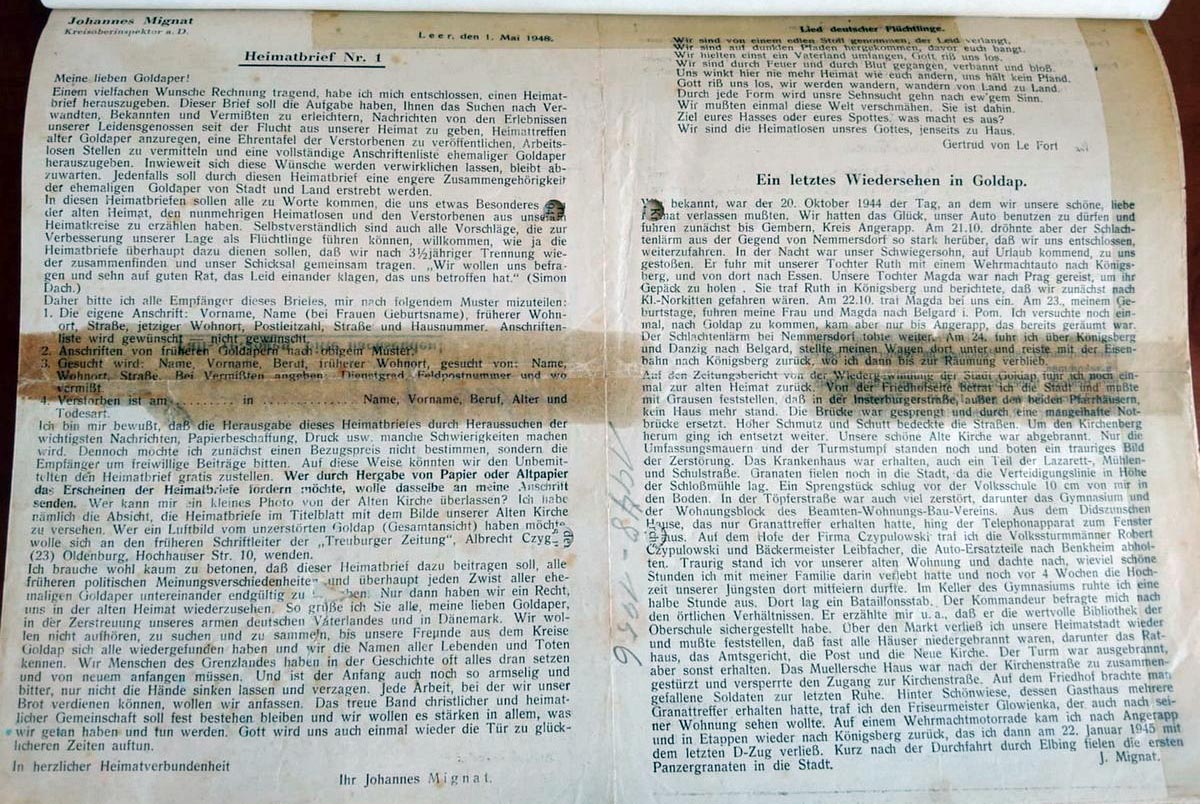 Johannes Mignat
Kreisoberinspektor a. D.
Leer, den 1. Mai 1948.
Heimatbrief Nr. 1
Meine lieben Goldaper!
Einem vielfachen Wunsche Rechnung tragend, habe ich mich entschlossen, einen Heimat-
brief herauszugeben. Dieser Brief soll die Aufgabe haben, Ihnen das Suchen nach Ver-
wandten, Bekannten und Vermißten zu erleichtern, Nachrichten von den Erlebnissen
unserer Leidensgenossen seit der Flucht aus unserer Heimat zu geben, Heimattreffen
alter Goldaper anzuregen, eine Ehrentafel der Verstorbenen zu veröffentlichen, Arbeits-
losen Stellen zu vermitteln und eine vollständige Anschriftenliste ehemaliger Goldaper
herauszugeben. Inwieweit sich diese Wünsche werden verwirklichen lassen, bleibt ab-
zuwarten. Jedenfalls soll durch diesen Heimatbrief eine engere Zusammengehörigkeit
der ehemaligen Goldaper von Stadt und Land erstrebt werden.
In diesen Heimatbriefen sollen alle zu Worte kommen, die uns etwas Besonderes
der alten Heimat, den nunmehrigen Heimatlosen und den Verstorbenen aus unserem
Heimatkreise zu erzählen haben. Selbstverständlich sind auch alle Vorschläge, die zur
Verbesserung unserer Lage als Flüchtlinge führen können, willkommen, wie ja die
Heimatbriefe überhaupt dazu dienen sollen, daß wir nach 3½jähriger Trennung wie-
der zusammenfinden und unser Schicksal gemeinsam tragen. „Wir wollen uns befra-
gen und sehn auf guten Rat, das Leid einander klagen, das uns betroffen hat.“ (Simon
Dach.)
Daher bitte ich alle Empfänger dieses Briefes, mir nach folgendem Muster mizuteilen:
1. Die eigene Anschrift: Vorname, Name (bei Frauen Geburtsname), früherer Wohn-
ort, Straße, jetziger Wohnort, Postleitzahl, Straße und Hausnummer. Anschriften-
liste wird gewünscht — nicht gewünscht.
2. Anschriften von früheren Goldapern nach obigem Muster.
3. Gesucht wird: Name, Vorname, Beruf, früherer Wohnort, gesucht von: Name,
Wohnort, Straße. Bei Vermißten angeben: Dienstgrad, Feldpostnummer und wo
vermißt
4. Verstorben ist am .......... in .................. Name, Vorname, Beruf, Alter und
Todesart.
Ich bin mir bewußt, daß die Herausgabe dieses Heimatbriefes durch Heraussuchen der
wichtigsten Nachrichten, Papierbeschaffung, Druck usw. manche Schwierigkeiten machen
wird. Dennoch möchte ich zunächst einen Bezugspreis nicht bestimmen, sondern die
Empfänger um freiwillige Beiträge bitten. Auf diese Weise könnten wir den Unbemit-
telten den Heimatbrief gratis zustellen. Wer durch Hergabe von Papier oder Altpapier
das Erscheinen der Heimatbriefe fördern möchte, wolle dasselbe an meine Anschrift
senden. Wer kann mir ein kleines Photo von der Alten Kirche überlassen? Ich habe
nämlich die Absicht, die Heimatbriefe im Titelblatt mit dem Bilde unserer Alten Kirche
zu versehen. Wer ein Luftbild vom unzerstörten Goldap (Gesamtansicht) haben möchte,
wolle sich an den früheren Schriftleiter der „Treuburger Zeitung“, Albrecht Czyg
(23) Oldenburg, Hochhauser Str. 10, wenden.
Ich brauche wohl kaum zu betonen, daß dieser Heimatbrief dazu beitragen soll, alle
früheren politischen Meinungsverschiedenheiten und überhaupt jeden Zwist aller ehe-
maligen Goldaper untereinander endgültig zu Nur dann haben wir ein Recht,
uns in der alten Heimat wiederzusehen. So grüße ich Sie alle, meine lieben Goldaper,
in der Zerstreuung unseres armen deutschen Vaterlandes und in Dänemark. Wir wol-
len nicht aufhören, zu suchen und zu sammeln, bis unsere Freunde aus dem Kreise
Goldap sich alle wiedergefunden haben und wir die Namen aller Lebenden und Toten
kennen. Wir Menschen des Grenzlandes haben in der Geschichte oft alles dran setzen
und von neuem anfangen müssen. Und ist der Anfang auch noch so armselig und
bitter, nur nicht die Hände sinken lassen und verzagen. Jede Arbeit, bei der wir unser
Brot verdienen können, wollen wir anfassen. Das treue Band christlicher und heimat-
licher Gemeinschaft soll fest bestehen bleiben und wir wollen es stärken in allem, was
wir getan haben und tun werden. Gott wird uns auch einmal wieder die Tür zu glück-
licheren Zeiten auftun.
In herzlicher Heimatverbundenheit
Ihr Johannes Mignat.
Lied deutscher Flüchtlinge.
Wir sind von einem edlen Stoff genommen, der Leid verlangt,
Wir sind auf dunklen Pfaden hergekommen, davor euch bangt.
Wir hielten einst ein Vaterland umfangen, Gott riß uns los.
Wir sind durch Feuer und durch Blut gegangen, verbannt und bloß.
Uns winkt hier nie mehr Heimat wie euch andern, uns hält kein Pfand.
Gott riß uns los, wir werden wandern, wandern von Land zu Land.
Durch jede Form wird unsre Sehnsucht gehn nach ew'gem Sinn.
Wir mußten einmal diese Welt verschmähen. Sie ist dahin.
Ziel eures Hasses oder eures Spottes, was macht es aus?
Wir sind die Heimatlosen unsres Gottes, jenseits zu Haus.
Gertrud von Le Fort
Ein letztes Wiedersehen in Goldap.
bekannt, war der 20. Oktober 1944 der Tag, an dem wir unsere schöne, liebe
Heimat verlassen mußten. Wir hatten das Glück, unser Auto benutzen zu dürfen und
fuhren zunächst bis Gembern, Kreis Angerapp. Am 21.10. dröhnte aber der Schlach-
tenlärm aus der Gegend von Nemmersdorf so stark herüber, daß wir uns entschlossen,
weiterzufahren. In der Nacht war unser Schwiegersohn, auf Urlaub kommend, zu uns
gestoßen. Er fuhr mit unserer Tochter Ruth mit einem Wehrmachtauto nach Königs-
berg, und von dort nach Essen. Unsere Tochter Magda war nach Prag gereist, um ihr
Gepäck zu holen. Sie traf Ruth in Königsberg und berichtete, daß wir zunächst nach
Kl.-Norkitten gefahren wären. Am 22.10. traf Magda bei uns ein. Am 23., meinem Ge-
burtstage, fuhren meine Frau und Magda nach Belgard i. Pom. Ich versuchte noch ein-
mal, nach Goldap zu kommen, kam aber nur bis Angerapp, das bereits geräumt war.
Der Schlachtenlärm bei Nemmersdorf tobte weiter. Am 24. fuhr ich über Königsberg
und Danzig nach Belgard, stellte meinen Wagen dort unter und reiste mit der Eisen-
bahn nach Königsberg zurück, wo ich dann bis zur Räumung verblieb.
Auf den Zeitungsbericht von der Wiedergewinnung der Stadt Goldap fuhr ich noch ein-
mal zur alten Heimat zurück. Von der Friedhofseite betrat ich die Stadt und mußte
mit Grausen feststellen, daß in der Insterburgerstraße, außer den beiden Pfarrhäusern,
kein Haus mehr stand. Die Brücke war gesprengt und durch eine mangelhafte Not-
brücke ersetzt. Hoher Schmutz und Schutt bedeckte die Straßen. Um den Kirchenberg
herum ging ich entsetzt weiter. Unsere schöne Alte Kirche war abgebrannt. Nur die
Umfassungsmauern und der Turmstumpf standen noch und boten ein trauriges Bild
der Zerstörung. Das Krankenhaus war erhalten, auch ein Teil der Lazarett-, Mühlen-
und Schulstraße. Granaten fielen noch in die Stadt, da die Verteidigungslinie in Höhe
der Schloßmühle lag. Ein Sprengstück schlug vor der Volksschule 10 cm von mir in
den Boden. In der Töpferstraße war auch viel zerstört, darunter das Gymnasium und
der Wohnungsblock des Beamten-Wohnungs-Bau-Vereins. Aus dem Didszunschen
Hause, das nur Granattreffer erhalten hatte, hing der Telephonapparat zum Fenster
hinaus. Auf dem Hofe der Firma Czypulowski traf ich die Volkssturmmänner Robert
Czypulowski und Bäckermeister Leibfacher, die Auto-Ersatzteile nach Benkheim abhol-
ten. Traurig stand ich vor unserer alten Wohnung und dachte nach, wieviel schöne
Stunden ich mit meiner Familie darin verlebt hatte und noch vor 4 Wochen die Hoch-
zeit unserer Jüngsten dort mitfeiern durfte. Im Keller des Gymnasiums ruhte ich eine
halbe Stunde aus. Dort lag ein Bataillonsstab. Der Kommandeur befragte mich nach
den örtlichen Verhältnissen. Er erzählte mir u. a., daß er die wertvolle Bibliothek der
Oberschule sichergestellt habe. Über den Markt verließ ich unsere Heimatstadt wieder
und mußte feststellen, daß fast alle Häuser niedergebrannt waren, darunter das Rat-
haus, das Amtsgericht, die Post und die Neue Kirche. Der Turm war ausgebrannt,
aber sonst erhalten. Das Muellersche Haus war nach der Kirchenstraße zu zusammen-
gestürzt und versperrte den Zugang zur Kirchenstraße. Auf dem Friedhof brachte man
gefallene Soldaten zur letzten Ruhe. Hinter Schönwiese, dessen Gasthaus mehrere
Granattreffer erhalten hatte, traf ich den Friseurmeister Glowienka, der auch nach sei-
ner Wohnung sehen wollte. Auf einem Wehrmachtmotorrade kam ich nach Angerapp
und in Etappen wieder nach Königsberg zurück, das ich dann am 22. Januar 1945 mit
dem letzten D-Zug verließ. Kurz nach der Durchfahrt durch Elbing fielen die ersten
Panzergranaten in die Stadt.
J. Mignat.
1948-1956